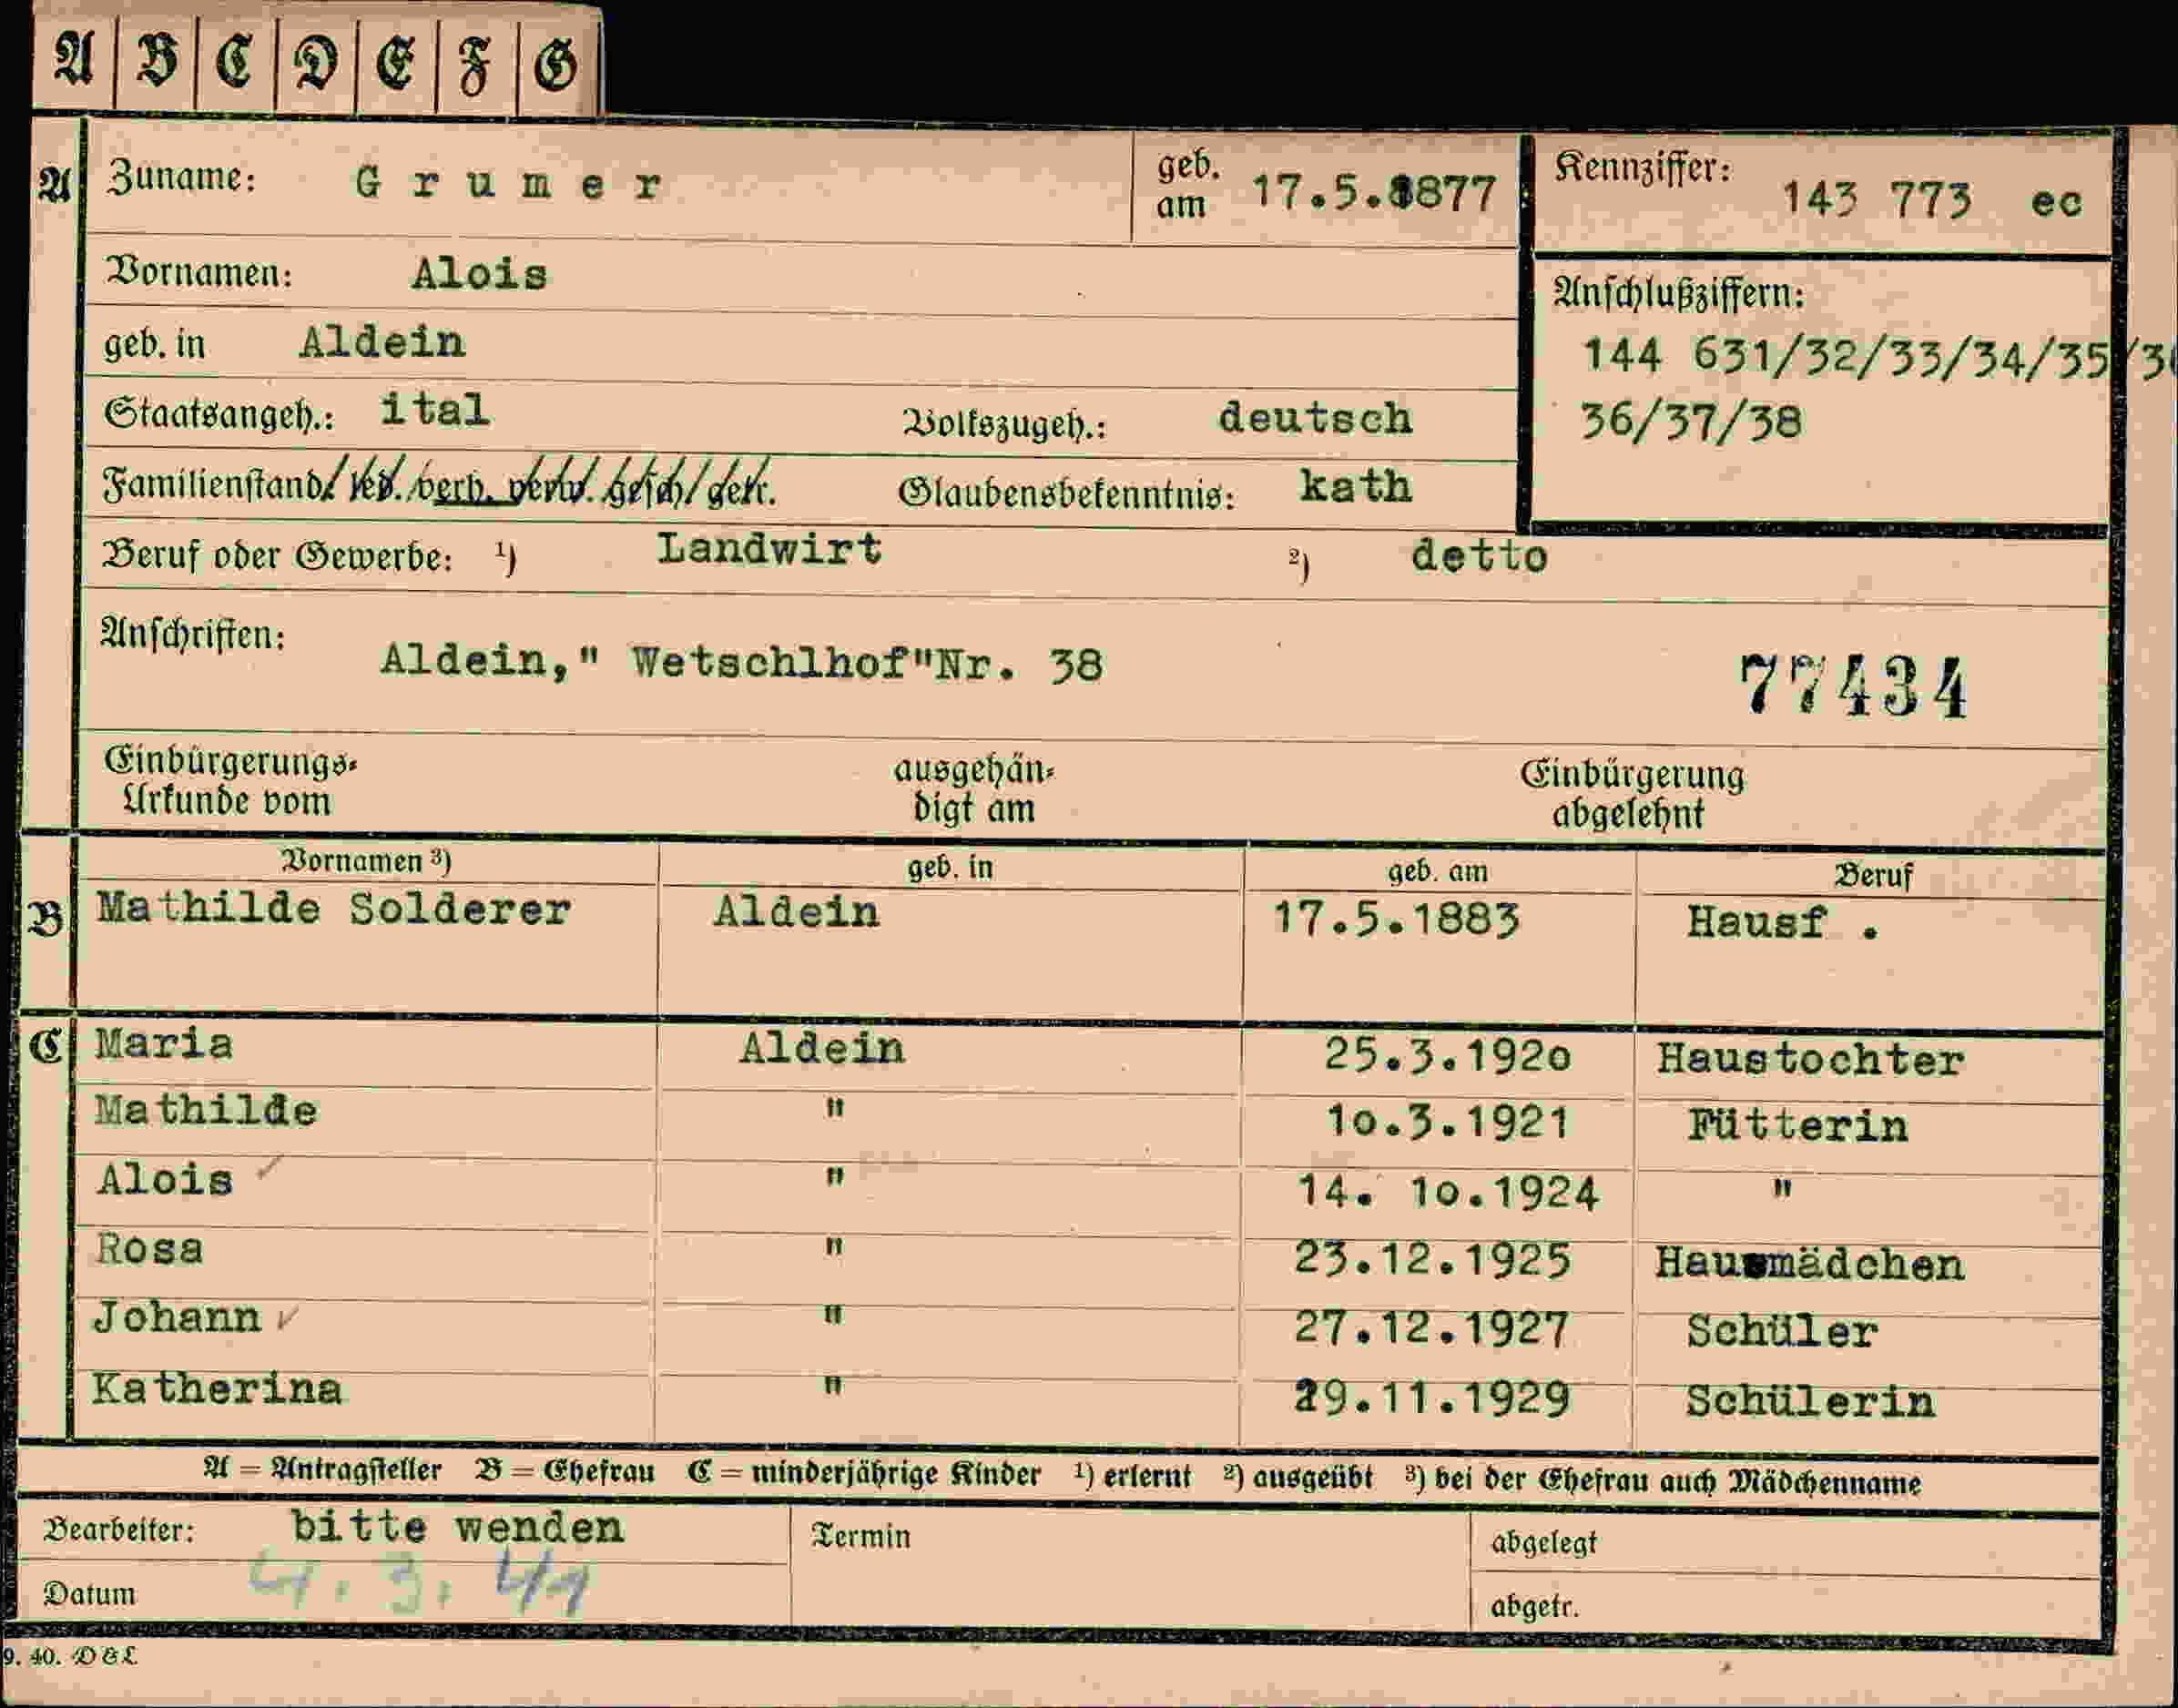 A B C D E F G
A Zuname: Grumer geb. am 17.5.1877 Kennziffer: 143 773 ec
Vornamen: Alois
Anschlußziffern:
geb. in Aldein 144 631/32/33/34/35/
Staatsangeh.: ital Volkszugeh.: deutsch 36/37/38
Familienstand: led. verh. verw. gesch. getr. Glaubensbekenntnis: kath
Beruf oder Gewerbe: 1) Landwirt 2) detto
Anschriften: Aldein," Wetschlhof"Nr. 38 77434
Einbürgerungs- ausgehän- Einbürgerung
Urkunde vom digt am abgelehnt
Vornamen 3) geb. in geb. am Beruf
B Mathilde Solderer Aldein 17.5.1883 Hausf .
C Maria Aldein 25.3.1920 Haustochter
Mathilde " 10.3.1921 Fütterin
Alois " 14. 10.1924 "
Rosa " 23.12.1925 Hausmädchen
Johann " 27.12.1927 Schüler
Katherina " 29.11.1929 Schülerin
A = Antragsteller B = Ehefrau C = minderjährige Kinder 1) erlernt 2) ausgeübt 3) bei der Ehefrau auch Mädchenname
Bearbeiter: bitte wenden Termin abgelegt
Datum 4.3.41 abgetr.
9. 40. D&L